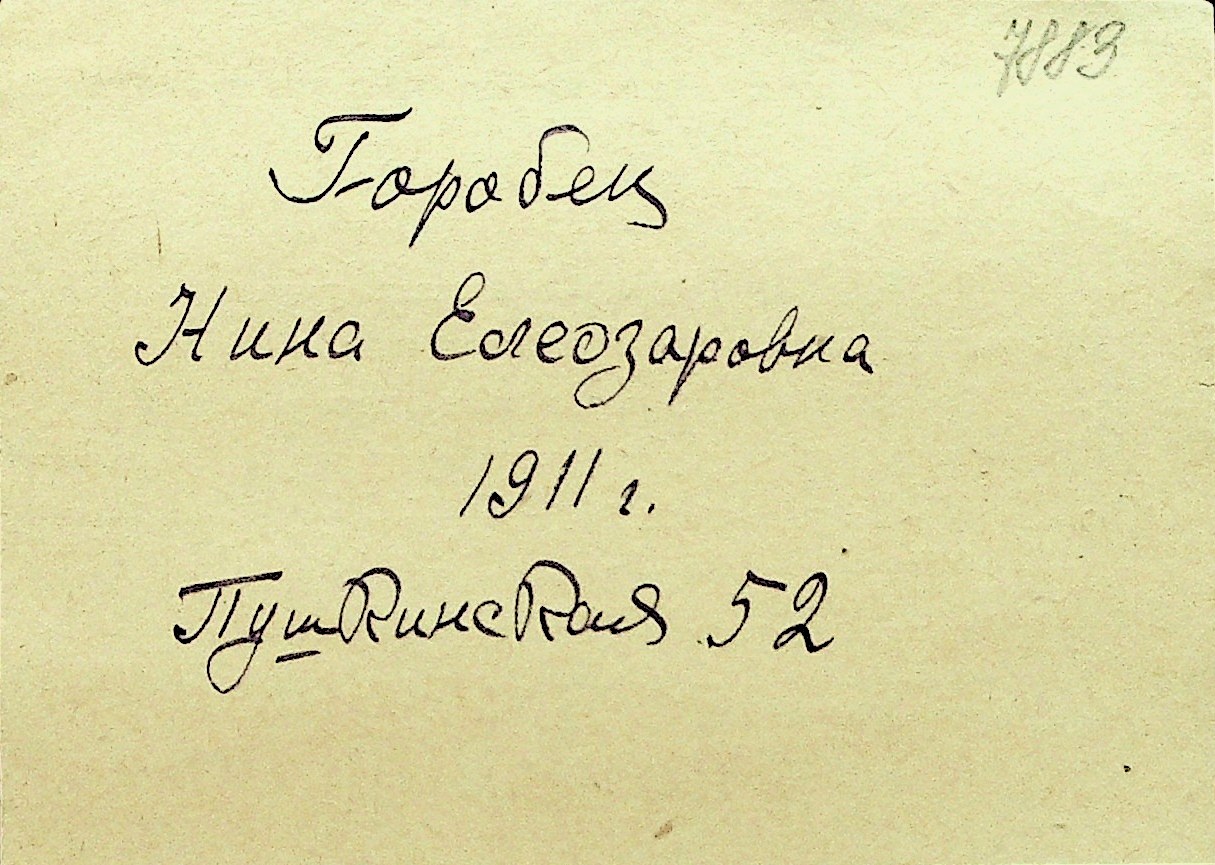 7883
Горобец
Нина Елеозаровна
1911 г.
Пушкинская 52